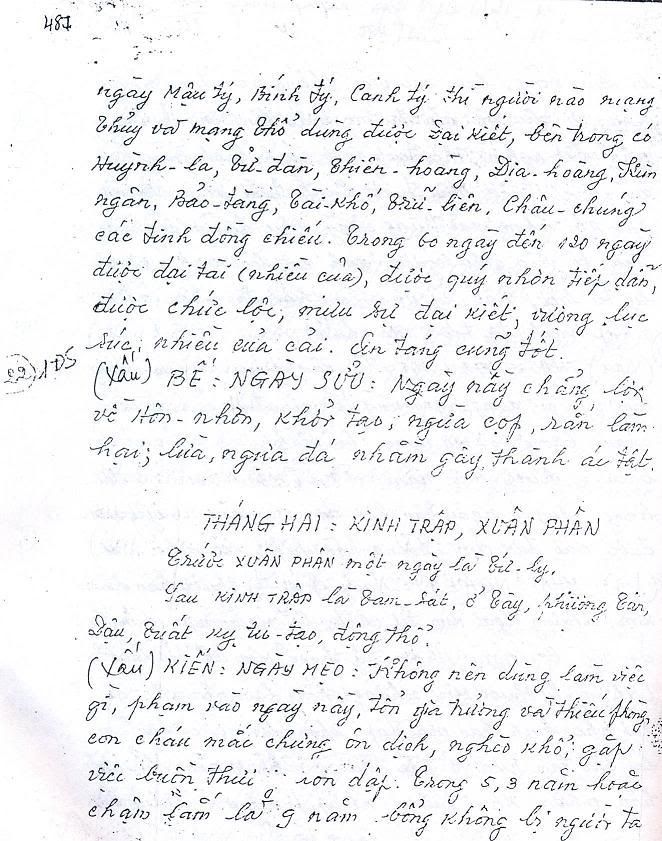 487
ngày Mậu Tý, Bính Tý, Canh Tý thì người nào mang
Thủy và mạng Thổ dùng được Đại Kiết, bên trong có
Huỳnh-la, Tử-đàn, Thiên-hoàng, Địa-hoàng, Kim
ngân, Bảo-tàng, Tài-khố, Trữ-liên, Châu-chung
các tinh đồng chiếu. Trong 60 ngày đến 120 ngày
được đại tài (nhiều của), được quý nhơn tiếp dẫn,
được chức lộc, mưu sự đại kiết, vượng lục
súc, nhiều của cải. An táng cũng tốt.
(Xấu) BẾ: NGÀY SỬU: Ngày nầy chẳng lợi
về Hôn-nhơn, khởi tạo, ngừa cọp, rắn làm
hại; lừa, ngựa đá nhằm gây thành ác tật.
THÁNG HAI: KINH TRẬP, XUÂN PHÂN
Trước XUÂN PHÂN một ngày là Tứ-ly.
Sau KINH TRẬP là Tam-Sát, ở Tây, phương Tân,
Dậu, Tuất kỵ tu-tạo, động thổ.
(Xấu) KIẾN: NGÀY MẸO: Không nên dùng làm việc
gì, phạm vào ngày nầy, tổn gia trưởng và thiếu phòng,
con cháu mắc chứng ôn dịch, nghèo khổ, gặp
việc buồn thưi dồn dập. Trong 5, 3 năm hoặc
chậm lắm là 9 năm bỗng không bị người ta